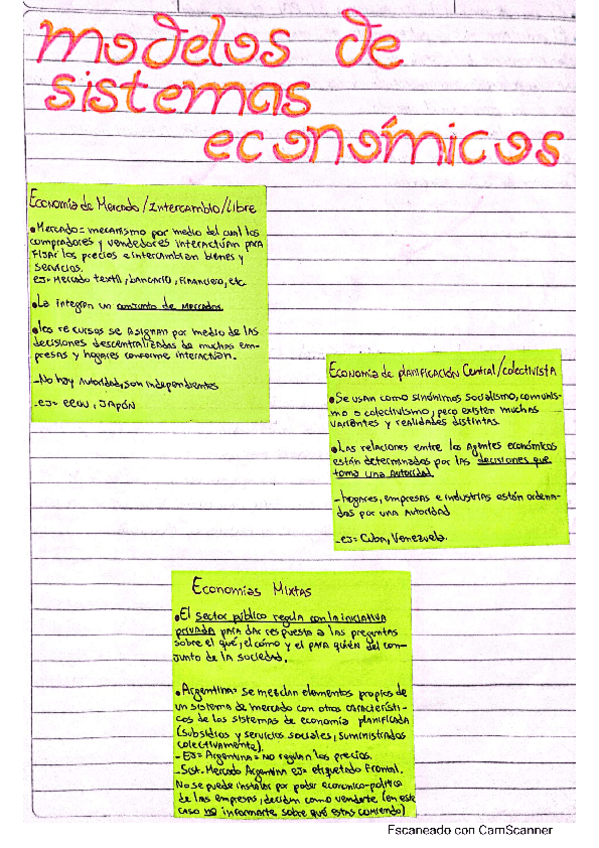 modelos de
sistemas
económicos
Economía de Mercado/Intercambio/Libre
•Mercado= mecanismo por medio del cual los
compradores y vendedores interactúan para
fijar los precios e intercambian bienes y
servicios.
ej= Mercado textil, bancario, financiero, etc
•La integran un conjunto de mercados
•los recursos se asignan por medio de las
decisiones descentralizadas de muchas em-
presas y hogares conforme interactúan.
-No hay autoridad, son independientes
-ej= EEUU, Japón
Economía de planificación Central/colectivista
•Se usan como sinónimos socialismo, comunis-
mo o colectivismo, pero existen muchas
variantes y realidades distintas
•Las relaciones entre los Agentes económicos
están determinados por las decisiones que
toma una autoridad
-hogares, empresas e industrias están ordena-
das por una autoridad
-ej= Cuba, Venezuela.
Economías Mixtas
•El sector público regula con la iniciativa
privada para dar respuesta a las preguntas
sobre el qué, el cómo y el para quién del con-
junto de la sociedad.
•Argentina= se mezclan elementos propios de
un sistema de mercado con otros característi-
cos de los sistemas de economía planificada
(subsidios y servicios sociales, suministrados
colectivamente).
-Ej= Argentina= No regulan los precios.
-Sist. Mercado Argentina ej= etiquetado frontal.
No se puede instalar por poder economico-politico
de las empresas, deciden como venderte (en este
caso no informarte sobre qué estas comiendo)
Escaneado con CamScanner